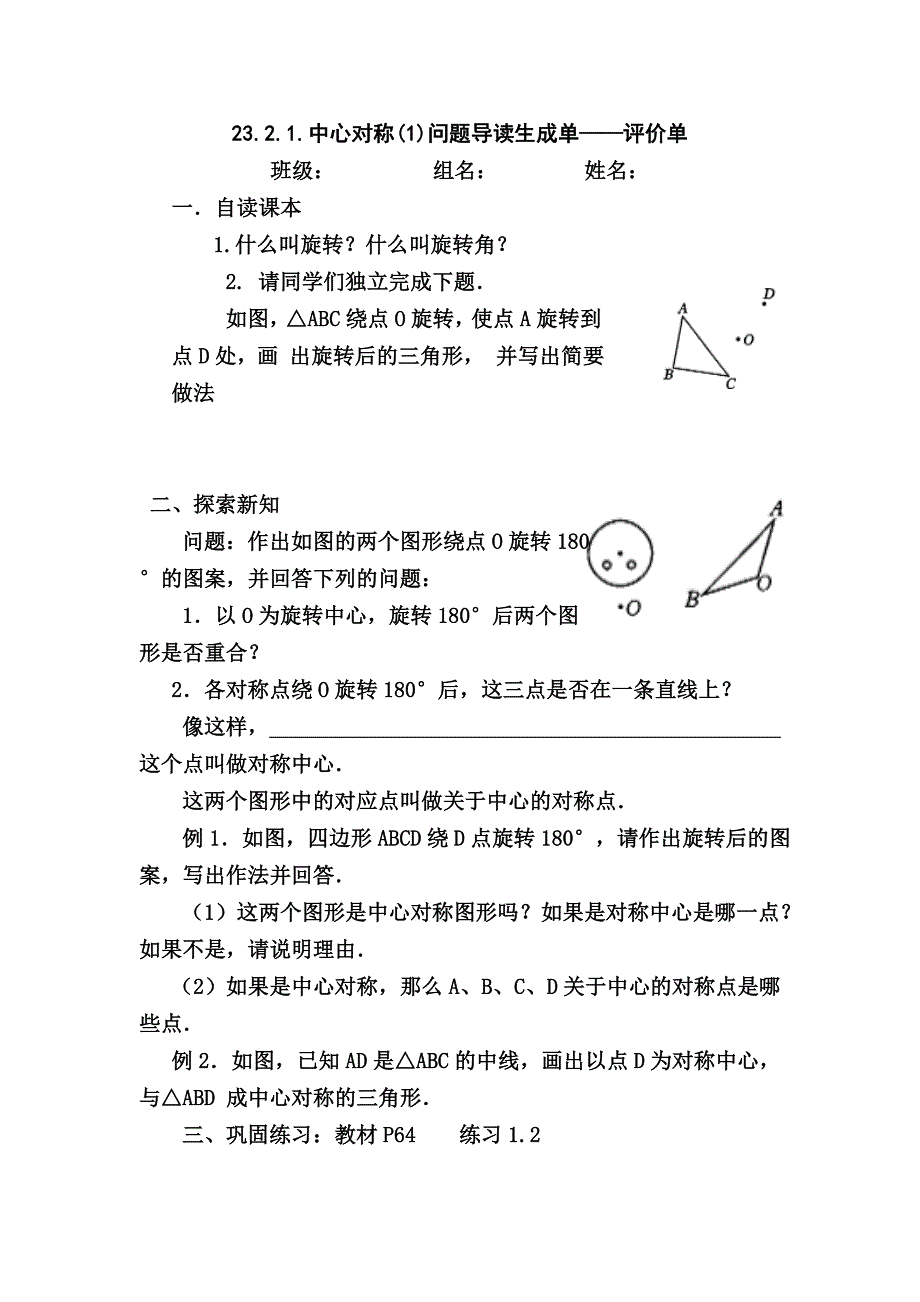 23.2.1.中心对称(1)问题导读生成单——评价单
班级: 组名: 姓名:
一．自读课本
1.什么叫旋转？什么叫旋转角？
2. 请同学们独立完成下题．
如图，△ABC绕点O旋转，使点A旋转到
点D处，画 出旋转后的三角形， 并写出简要
做法
A
B
C
D
O
二、探索新知
问题：作出如图的两个图形绕点O旋转180
°的图案，并回答下列的问题：
O
A
B
O
1．以O为旋转中心，旋转180°后两个图
形是否重合？
2．各对称点绕O旋转180°后，这三点是否在一条直线上？
像这样，
这个点叫做对称中心．
这两个图形中的对应点叫做关于中心的对称点．
例1．如图，四边形ABCD绕D点旋转180°，请作出旋转后的图
案，写出作法并回答．
（1）这两个图形是中心对称图形吗？如果是对称中心是哪一点？
如果不是，请说明理由．
（2）如果是中心对称，那么A、B、C、D关于中心的对称点是哪
些点．
例2．如图，已知AD是△ABC的中线，画出以点D为对称中心，
与△ABD 成中心对称的三角形．
三、巩固练习：教材P64 练习1.2